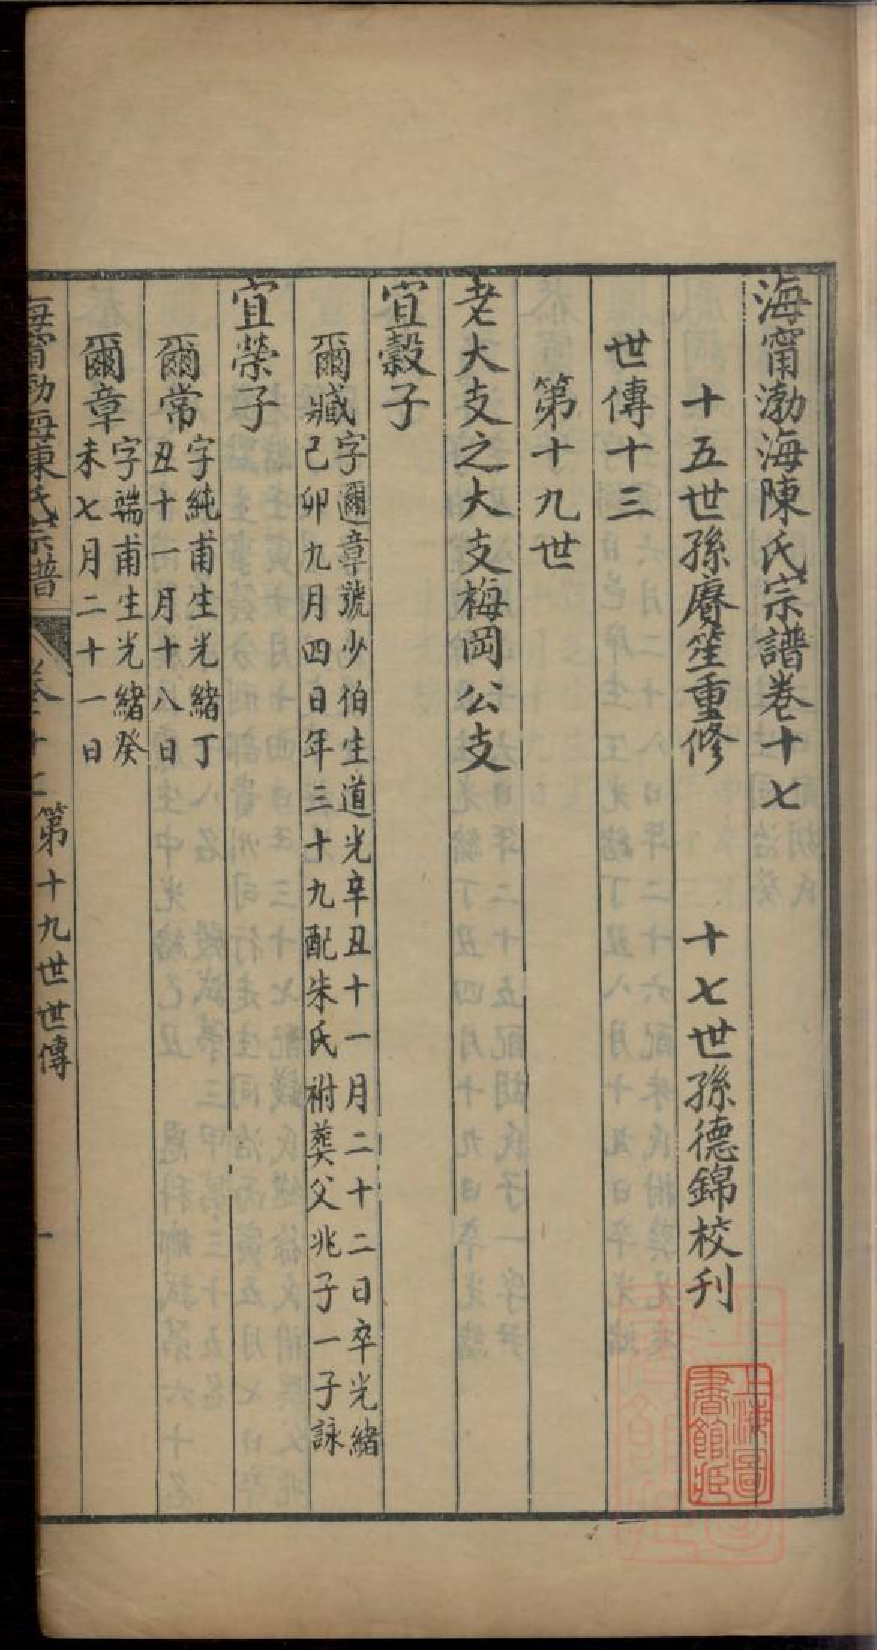 海甯渤海陳氏宗譜卷十七
十五世孫賡笙重修　十七世孫德錦校刋
世傳十三
第十九世
老大支之大支梅岡公支
宜穀子
爾臧字邇章號少伯生道光辛丑十一月二十二日卒光緒
己卯九月四日年三十九配朱氏祔葬父兆子一子詠
宜榮子
爾常字純甫生光緒丁
丑十一月十八日
爾章字端甫生光緒癸
未七月二十一日
海甯渤海陳氏宗譜　卷十七　第十九世世傳　一
上海圖書館藏